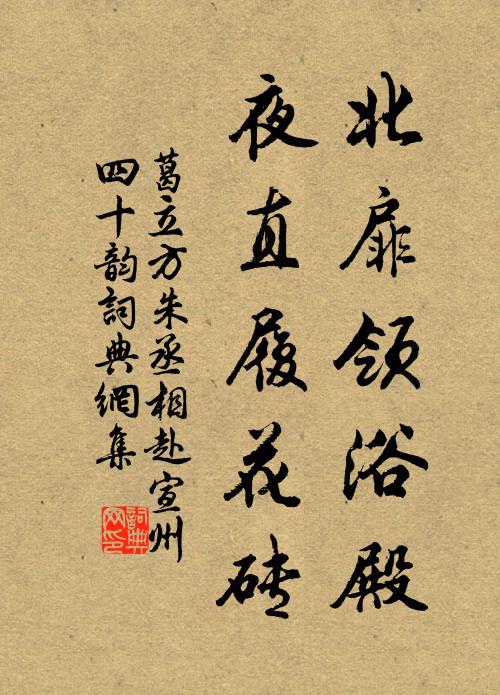 北扉領浴殿
夜直履花砖
葛立方朱丞相赴宣州
四十韵詞典網集
詞典网印